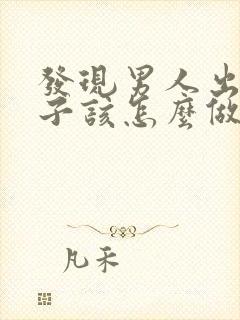 發現男人出
子該怎麼做
凡禾